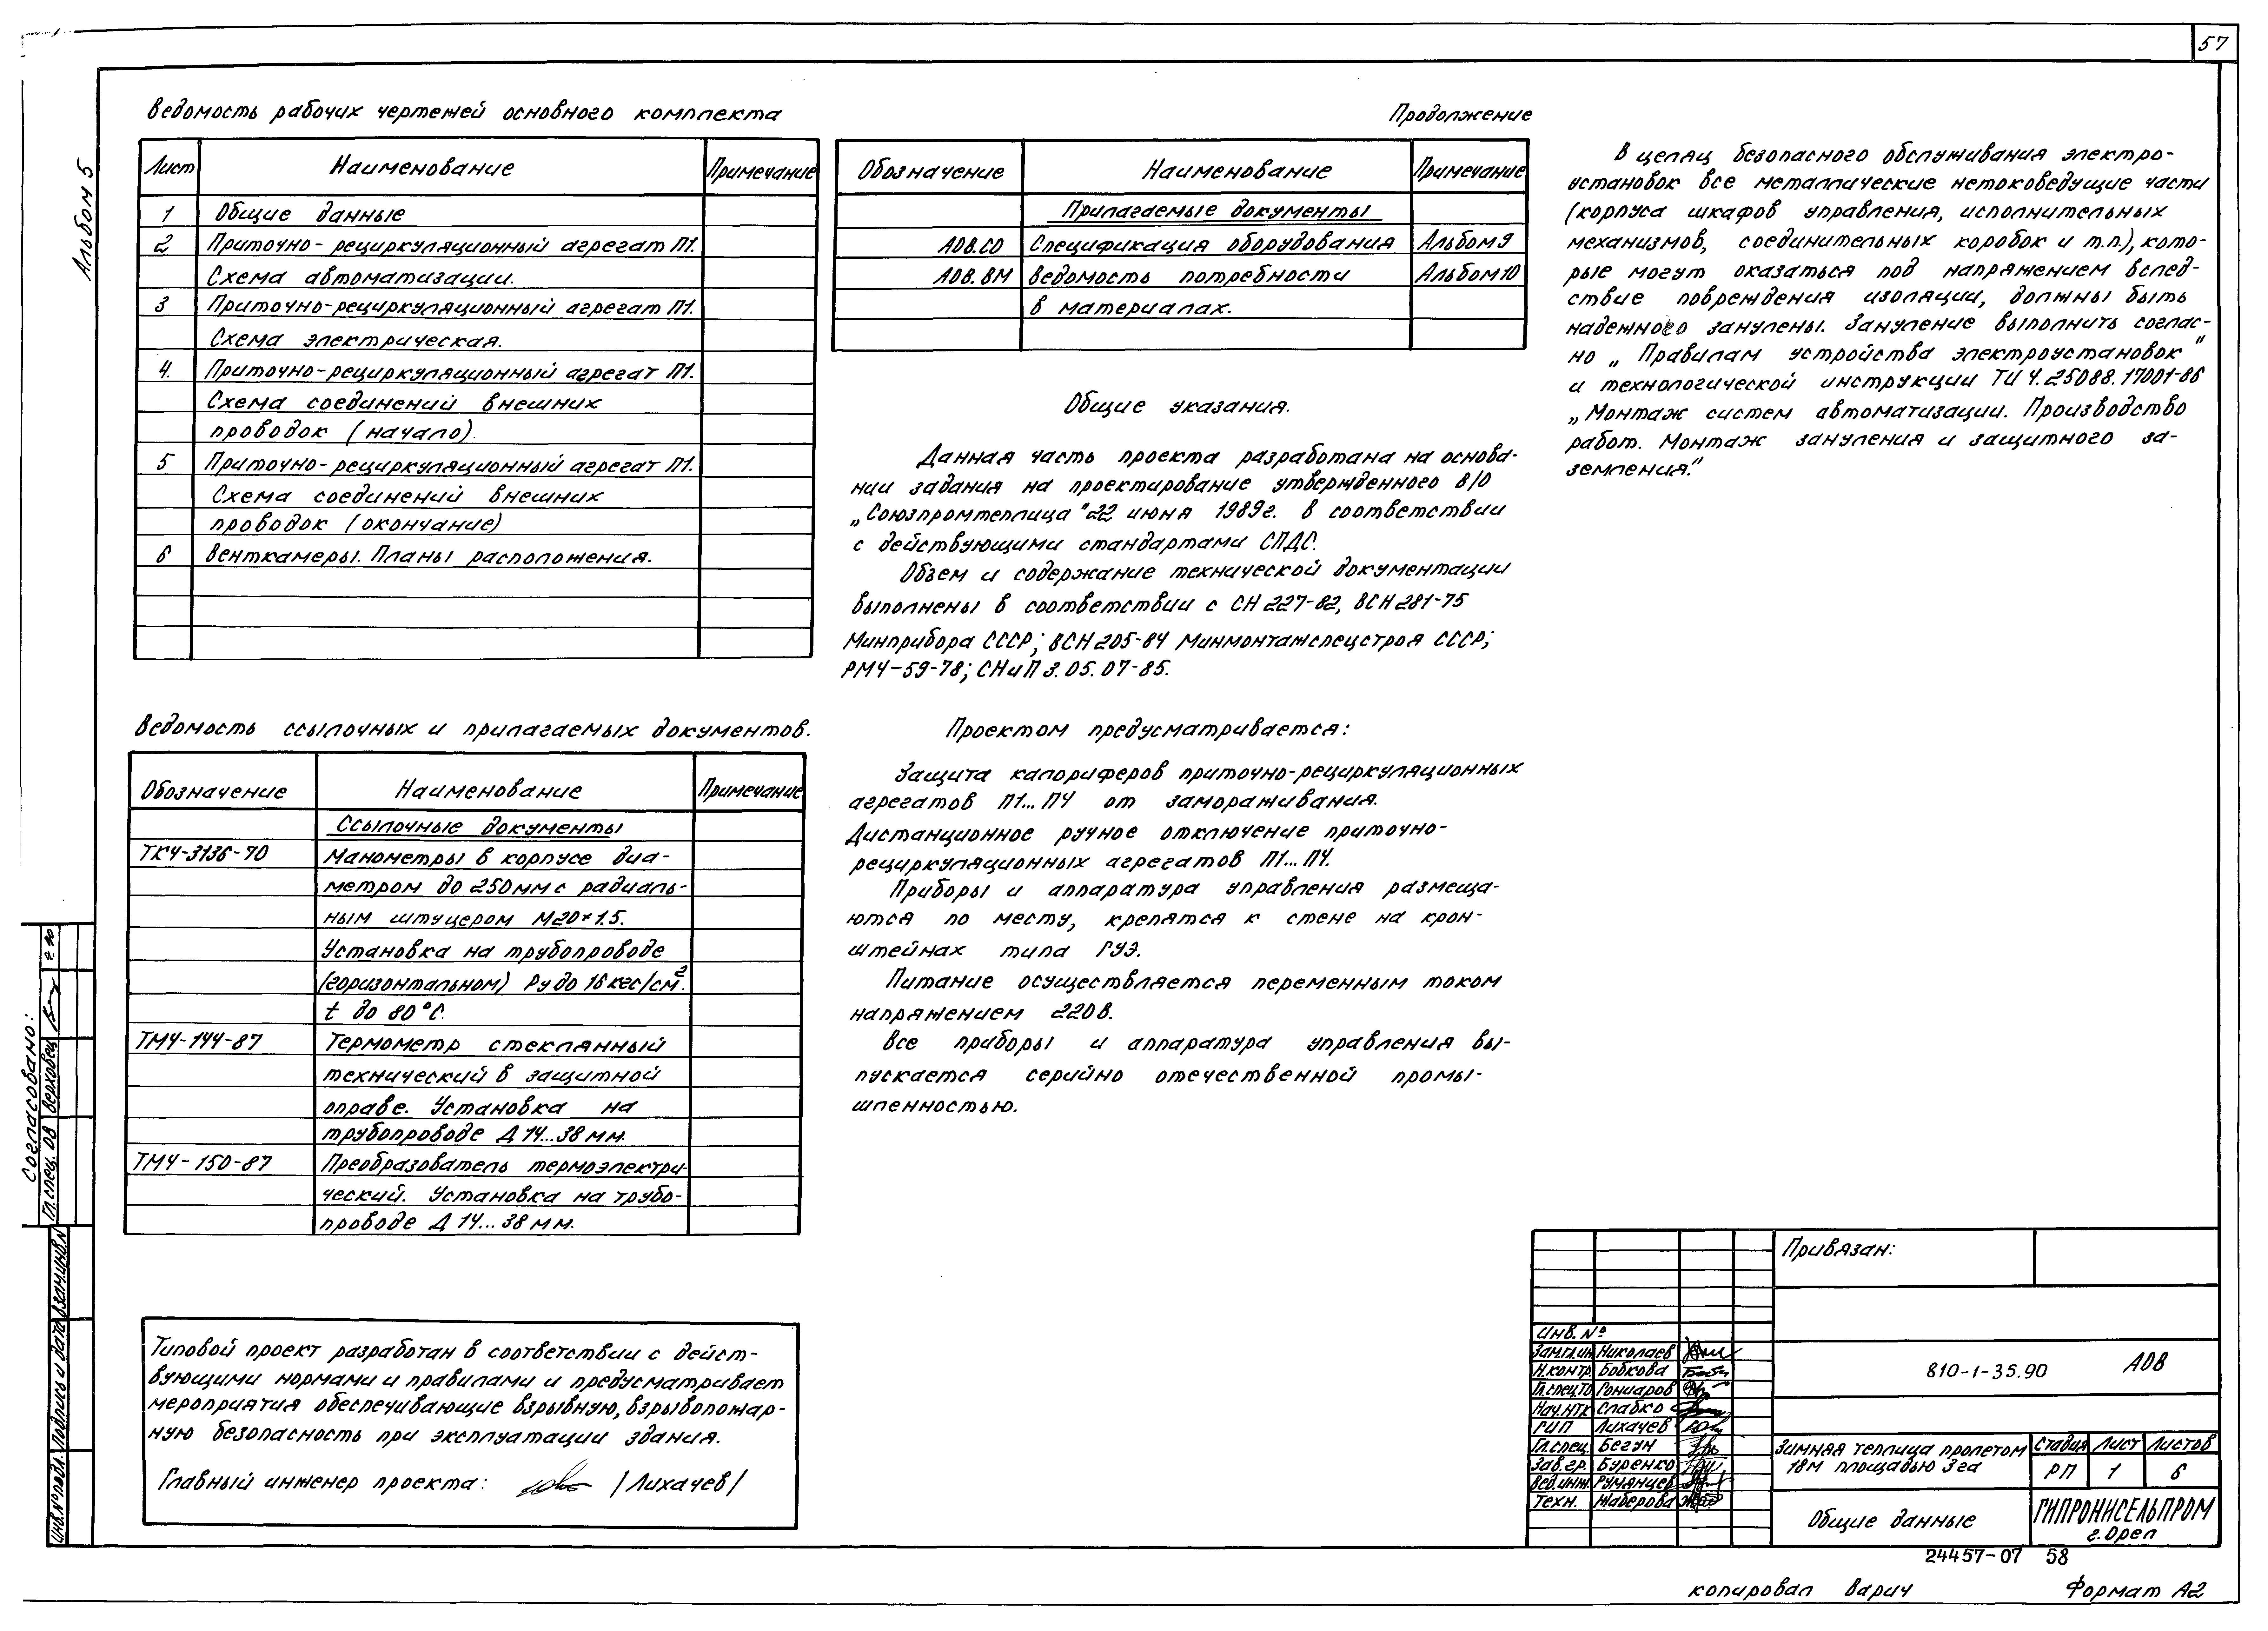 57
Альбом 5
Ведомость рабочих чертежей основного комплекта
Лист Наименование Примечание
1 Общие данные
2 Приточно-рециркуляционный агрегат П1.
Схема автоматизации.
3 Приточно-рециркуляционный агрегат П1.
Схема электрическая.
4. Приточно-рециркуляционный агрегат П1.
Схема соединений внешних
проводок (начало).
5 Приточно-рециркуляционный агрегат П1.
Схема соединений внешних
проводок (окончание)
6 Венткамеры. Планы расположения.
Ведомость ссылочных и прилагаемых документов.
Обозначение Наименование Примечание
Ссылочные документы
ТК4-3136-70 Манометры в корпусе диа-
метром до 250мм с радиаль-
ным штуцером М20×1.5.
Установка на трубопроводе
(горизонтальном) Ру до 16 кгс/см².
t до 80°С.
ТМ4-144-87 Термометр стеклянный
технический в защитной
оправе. Установка на
трубопроводе Д 14...38 мм.
ТМ4-150-87 Преобразователь термоэлектри-
ческий. Установка на трубо-
проводе Д 14...38 мм.
Типовой проект разработан в соответствии с дейст-
вующими нормами и правилами и предусматривает
мероприятия обеспечивающие взрывную, взрывопожар-
ную безопасность при эксплуатации здания.
Главный инженер проекта: /Лихачев/
Продолжение
Обозначение Наименование Примечание
Прилагаемые документы
АОВ.СО Спецификация оборудования Альбом 9
АОВ.ВМ Ведомость потребности Альбом 10
в материалах.
Общие указания.
Данная часть проекта разработана на основа-
нии задания на проектирование утвержденного В/О
„Союзпромтеплица" 22 июня 1989г. в соответствии
с действующими стандартами СПДС.
Объем и содержание технической документации
выполнены в соответствии с СН 227-82, ВСН 281-75
Минприбора СССР; ВСН 205-84 Минмонтажспецстроя СССР;
РМ4-59-78; СНиП 3.05.07-85.
Проектом предусматривается:
Защита калориферов приточно-рециркуляционных
агрегатов П1...П4 от замораживания.
Дистанционное ручное отключение приточно-
рециркуляционных агрегатов П1...П4.
Приборы и аппаратура управления размеща-
ются по месту, крепятся к стене на крон-
штейнах типа ГУЭ.
Питание осуществляется переменным током
напряжением 220В.
Все приборы и аппаратура управления вы-
пускается серийно отечественной промы-
шленностью.
В целях безопасного обслуживания электро-
установок все металлические нетоковедущие части
(корпуса шкафов управления, исполнительных
механизмов, соединительных коробок и т.п.), кото-
рые могут оказаться под напряжением вслед-
ствие повреждения изоляции, должны быть
надежного занулены. Зануление выполнить соглас-
но „Правилам устройства электроустановок"
и технологической инструкции ТИ 4.25088.17001-86
„Монтаж систем автоматизации. Производство
работ. Монтаж зануления и защитного за-
земления."
Согласовано:
Гл.спец. ОВ Верховец
Инв.№ подл. Подпись и дата Взам.инв.№
Привязан:
Инв. №
Зам.гл.ин Николаев
Н.контр. Бобкова
Гл.спец.ТО Гончаров
Нач.НТК Слабко
ГИП Лихачев
Гл.спец. Бегун
Зав.гр. Буренко
Вед.инж. Румянцев
Техн. Жаберова
810-1-35.90 АОВ
Зимняя теплица пролетом
18м площадью 3га
Стадия Лист Листов
РП 1 6
Общие данные
ГИПРОНИСЕЛЬПРОМ
г. Орел
24457-07 58
Копировал Варич Формат А2